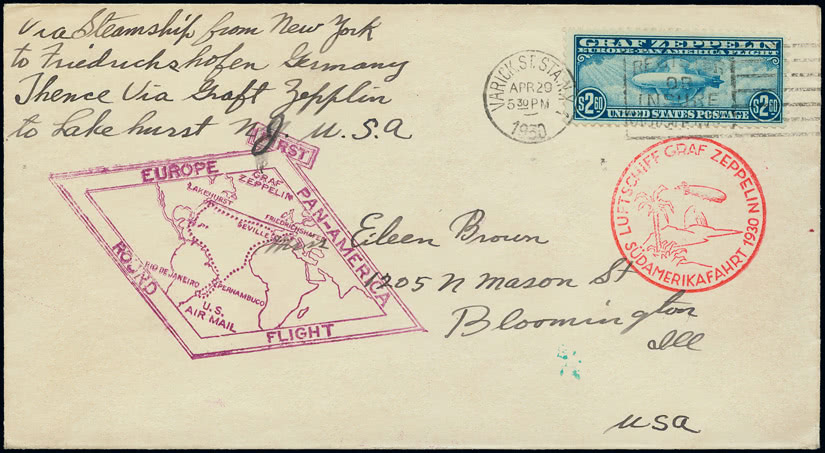 Via Steamship from New York
to Friedrichshofen Germany
Thence Via Graft Zepplin
to Lakehurst N.J. U.S.A
VARICK ST. STA. N.Y.
APR 29
5 30 PM
1930
GRAF ZEPPELIN
EUROPE-PAN AMERICA FLIGHT
$2 60 $2 60
UNITED STATES POSTAGE
OR
FIRST
EUROPE
PAN-AMERICA
ROUND
FLIGHT
GRAF
ZEPPELIN
LAKEHURST
FRIEDRICHSHAFEN
SEVILLE
RIO DE JANEIRO
PERNAMBUCO
U.S.
AIR MAIL
LUFTSCHIFF GRAF ZEPPELIN
SÜDAMERIKAFAHRT 1930
Eileen Brown
1205 N Mason St
Bloomington
Ill
USA